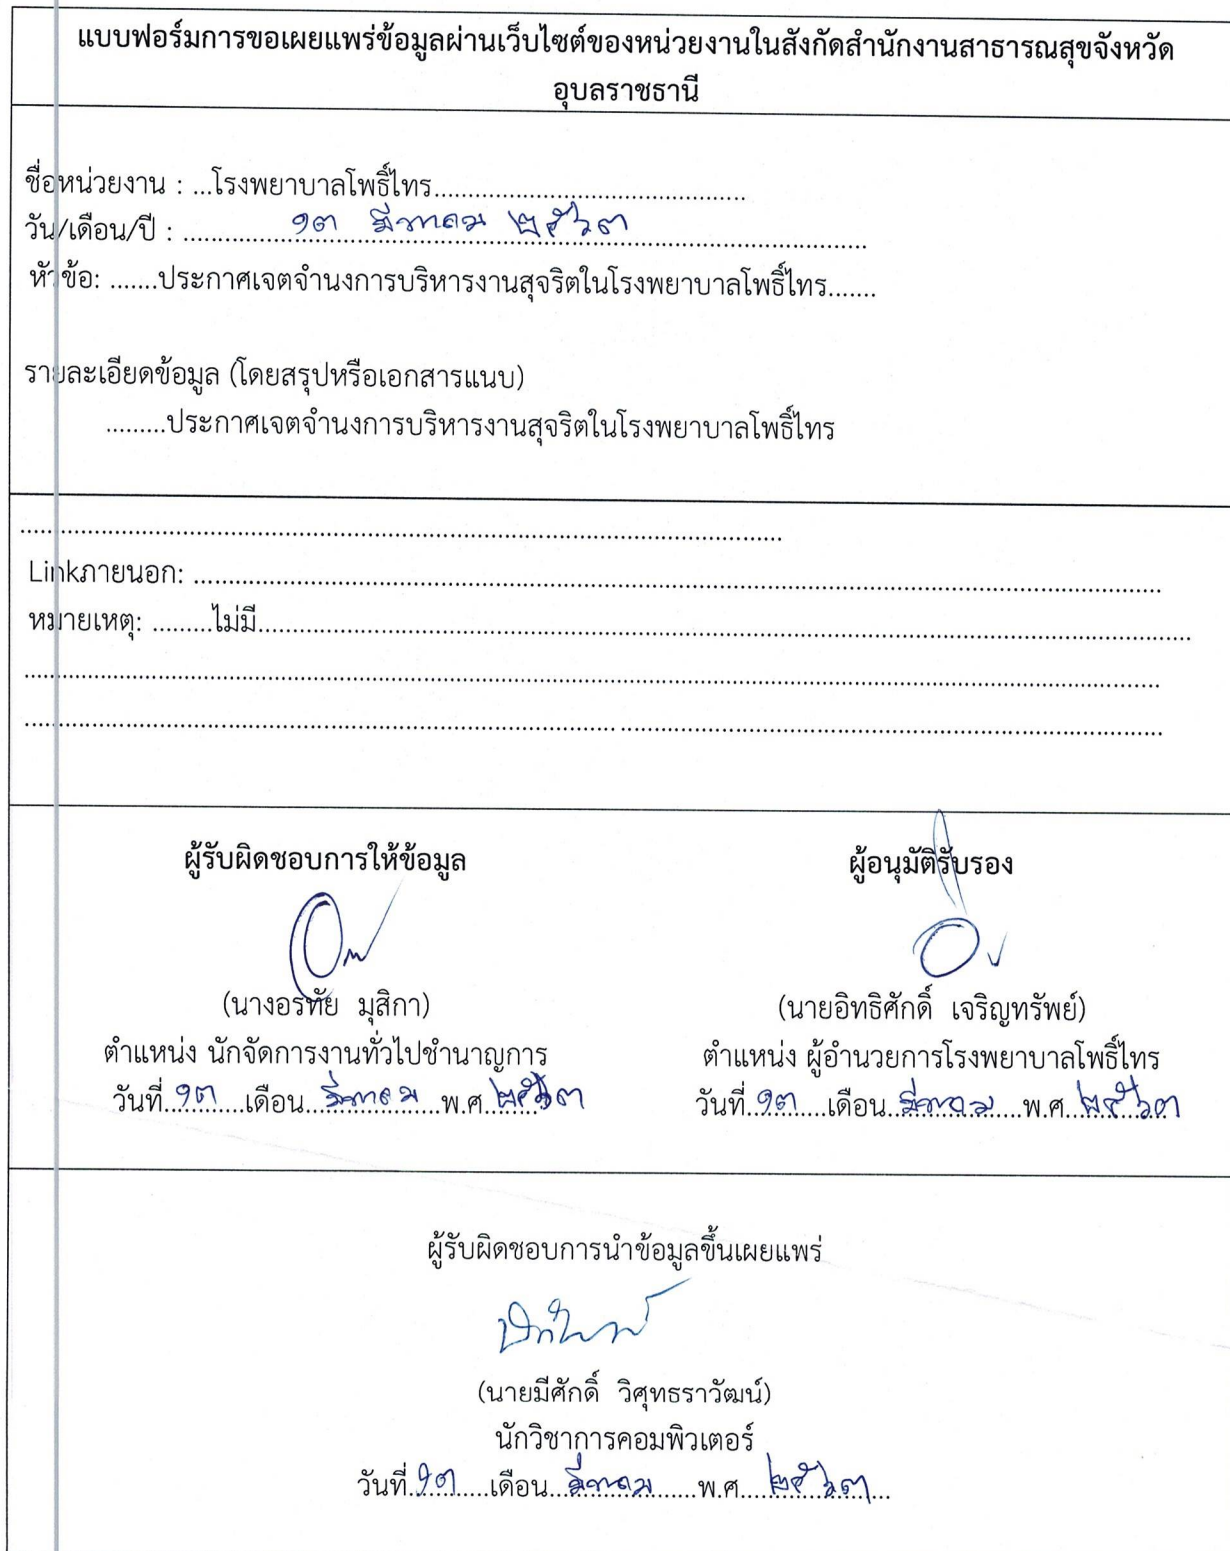 แบบฟอร์มการขอเผยแพร่ข้อมูลผ่านเว็บไซต์ของหน่วยงานในสังกัดสำนักงานสาธารณสุขจังหวัด
อุบลราชธานี
ชื่อหน่วยงาน : ...โรงพยาบาลโพธิ์ไทร..............................................
วัน/เดือน/ปี : ................ ๑๓ มีนาคม ๒๕๖๓ ................
หัวข้อ: .......ประกาศเจตจำนงการบริหารงานสุจริตในโรงพยาบาลโพธิ์ไทร.......
รายละเอียดข้อมูล (โดยสรุปหรือเอกสารแนบ)
.........ประกาศเจตจำนงการบริหารงานสุจริตในโรงพยาบาลโพธิ์ไทร
Linkภายนอก: ................................
หมายเหตุ: .........ไม่มี................................
ผู้รับผิดชอบการให้ข้อมูล ผู้อนุมัติรับรอง
(นางอรทัย มุสิกา) (นายอิทธิศักดิ์ เจริญทรัพย์)
ตำแหน่ง นักจัดการงานทั่วไปชำนาญการ ตำแหน่ง ผู้อำนวยการโรงพยาบาลโพธิ์ไทร
วันที่ ๑๓ เดือน มีนาคม พ.ศ. ๒๕๖๓ วันที่ ๑๓ เดือน มีนาคม พ.ศ. ๒๕๖๓
ผู้รับผิดชอบการนำข้อมูลขึ้นเผยแพร่
(นายมีศักดิ์ วิศุทธราวัฒน์)
นักวิชาการคอมพิวเตอร์
วันที่ ๑๓ เดือน มีนาคม พ.ศ. ๒๕๖๓